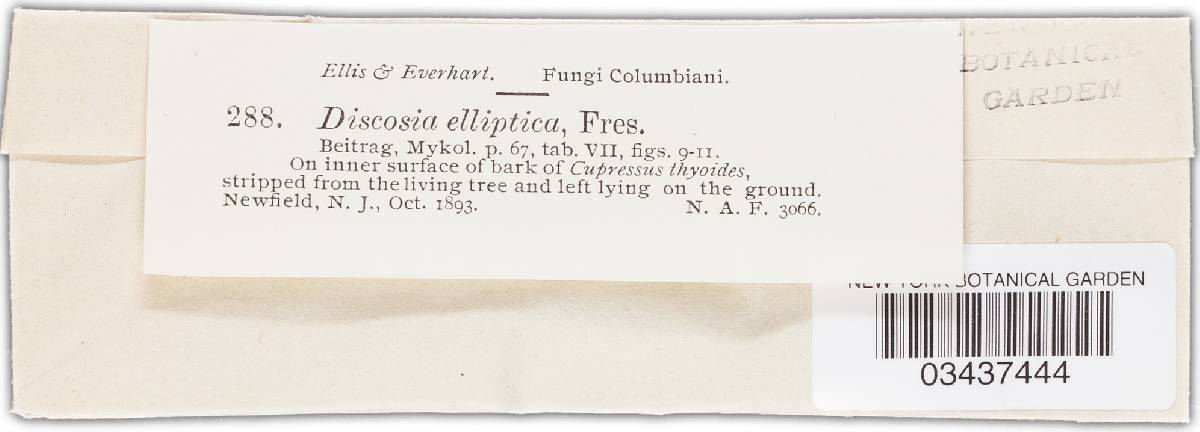 Ellis & Everhart. Fungi Columbiani.
288. Discosia elliptica, Fres.
Beitrag, Mykol. p. 67, tab. VII, figs. 9-11.
On inner surface of bark of Cupressus thyoides,
stripped from the living tree and left lying on the ground.
Newfield, N. J., Oct. 1893. N. A. F. 3066.
BOTANICAL
GARDEN
NEW YORK BOTANICAL GARDEN
03437444